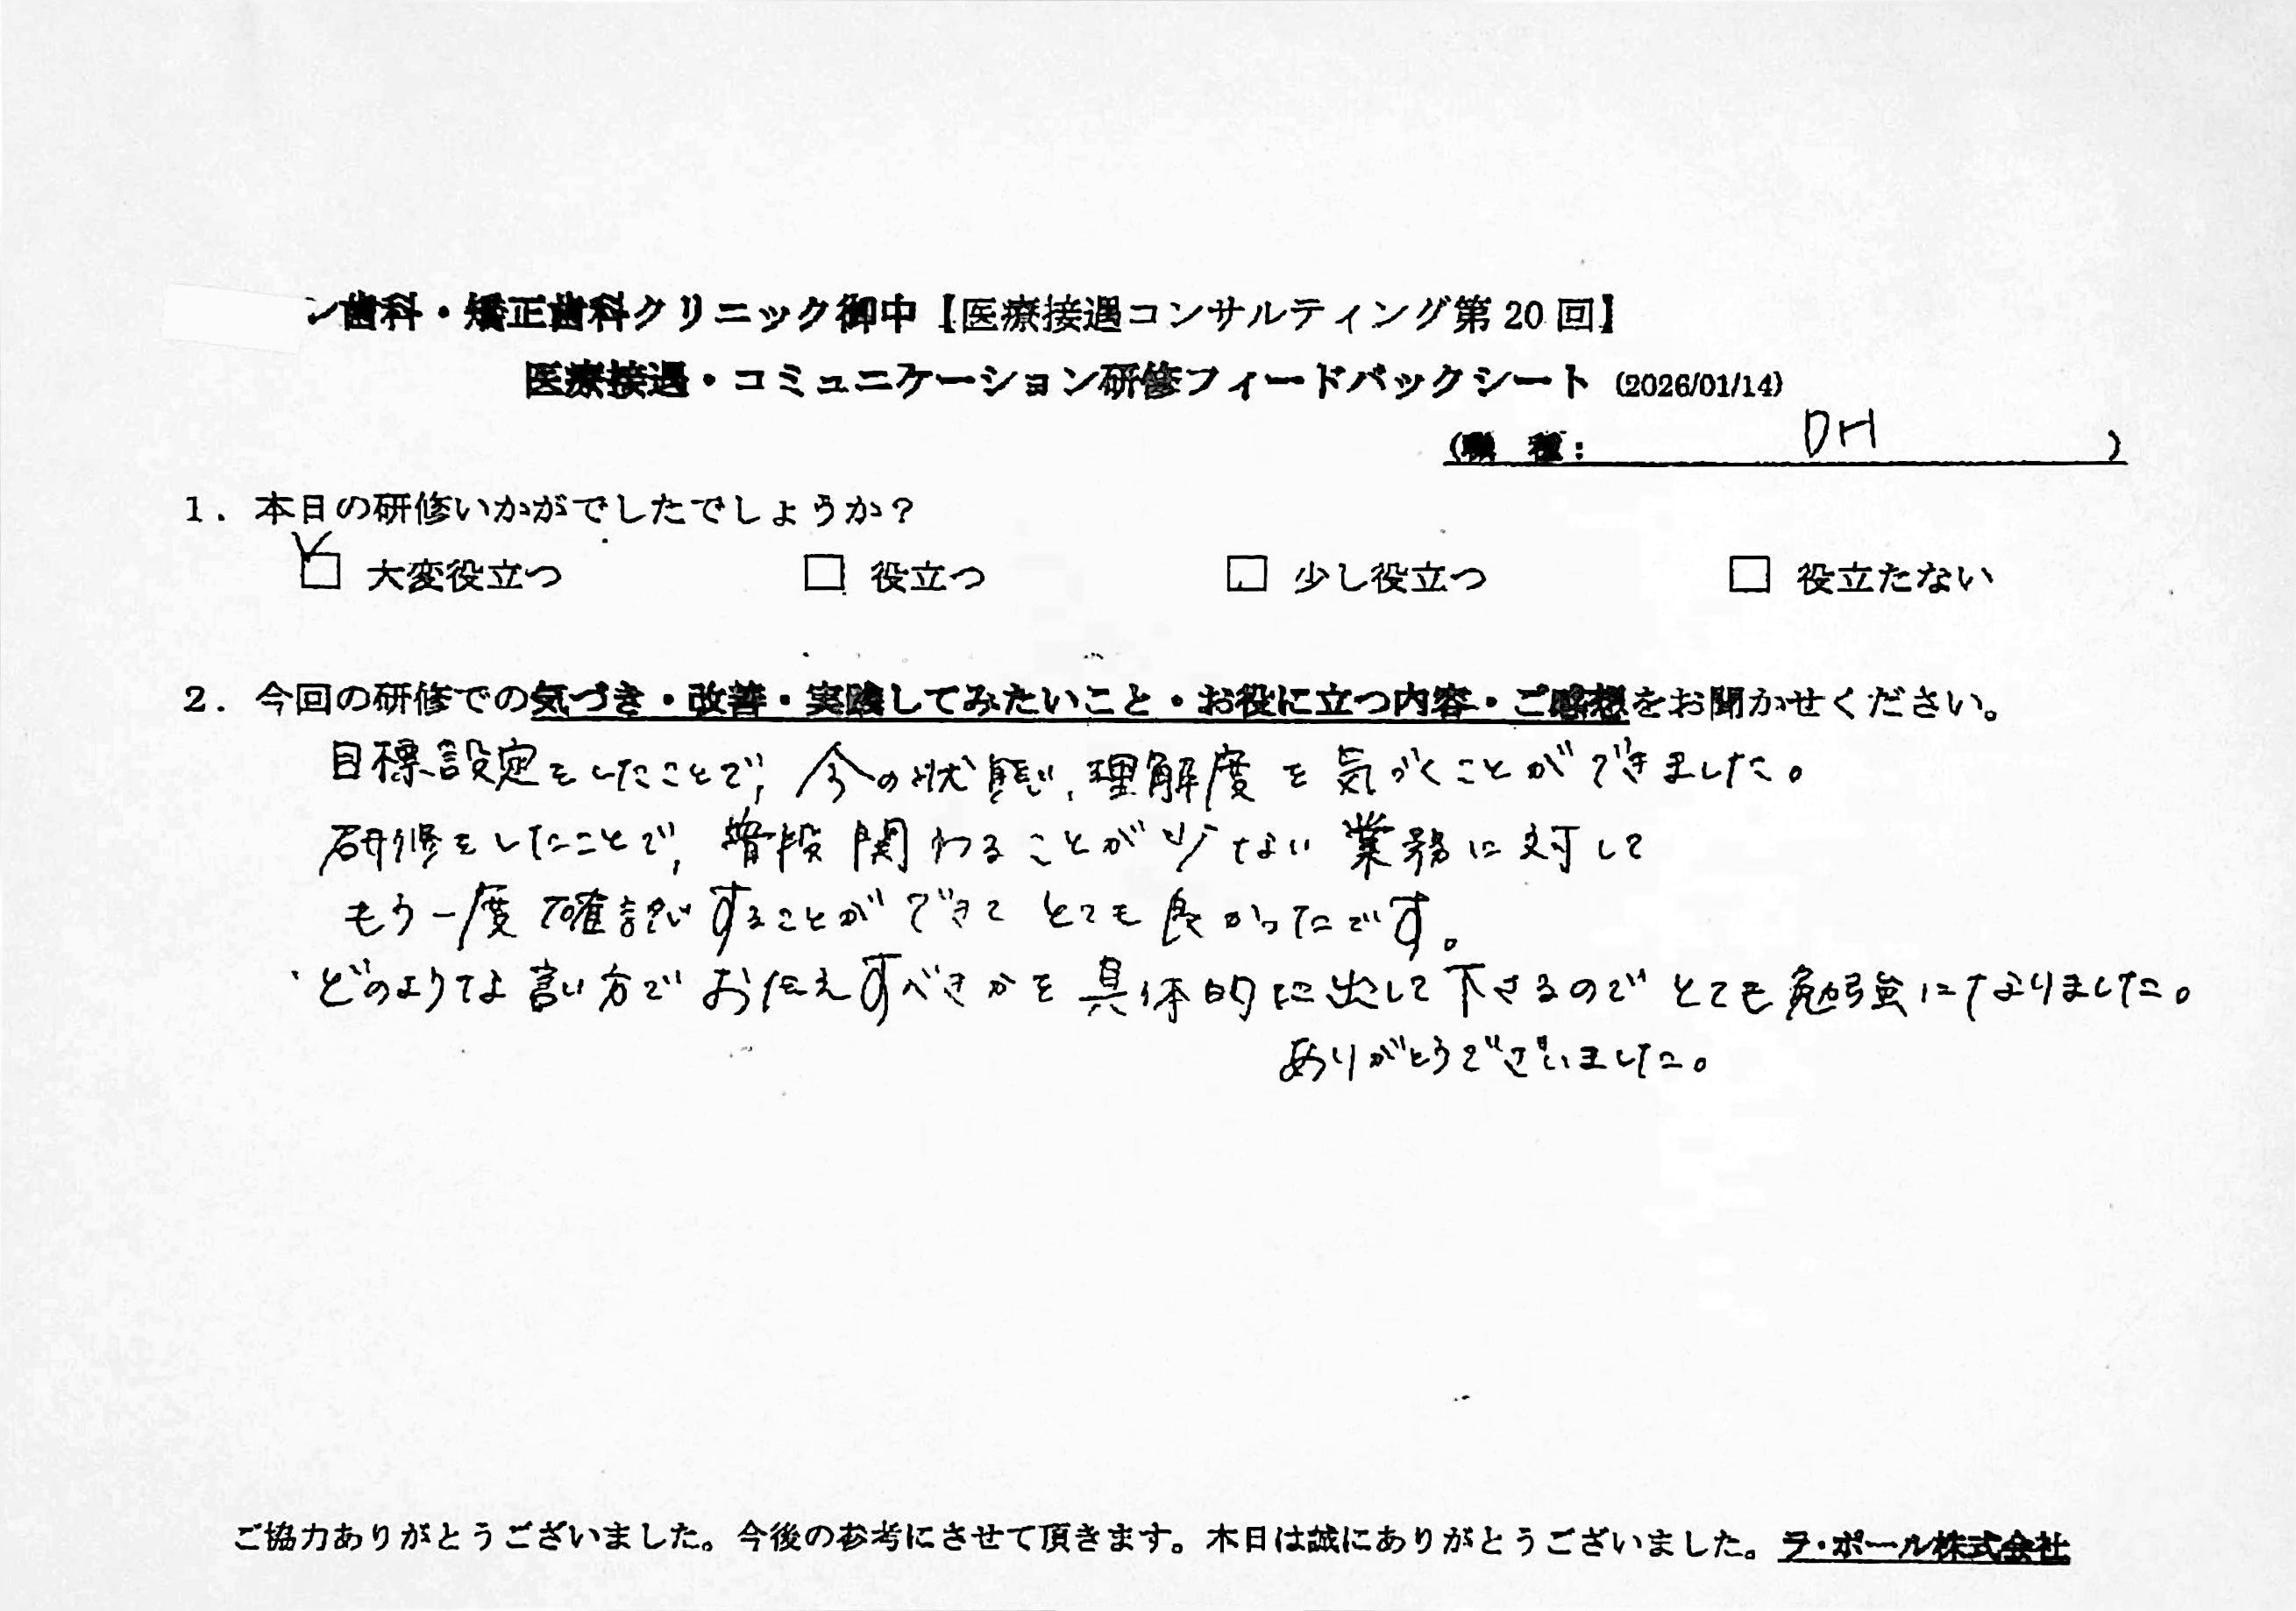 ン歯科・矯正歯科クリニック御中【医療接遇コンサルティング第20回】
医療接遇・コミュニケーション研修フィードバックシート (2026/01/14)
(職 種: DH )
1. 本日の研修いかがでしたでしょうか?
☑ 大変役立つ □ 役立つ □ 少し役立つ □ 役立たない
2. 今回の研修での気づき・改善・実践してみたいこと・お役に立つ内容・ご感想をお聞かせください。
目標設定をしたことで、今の状態、理解度を気づくことができました。
研修をしたことで、普段関わることが少ない業務に対して
もう一度確認することができてとても良かったです。
・どのような言い方でお伝えすべきかを具体的に出して下さるのでとても勉強になりました。
ありがとうございました。
ご協力ありがとうございました。今後の参考にさせて頂きます。本日は誠にありがとうございました。ラ・ポール株式会社